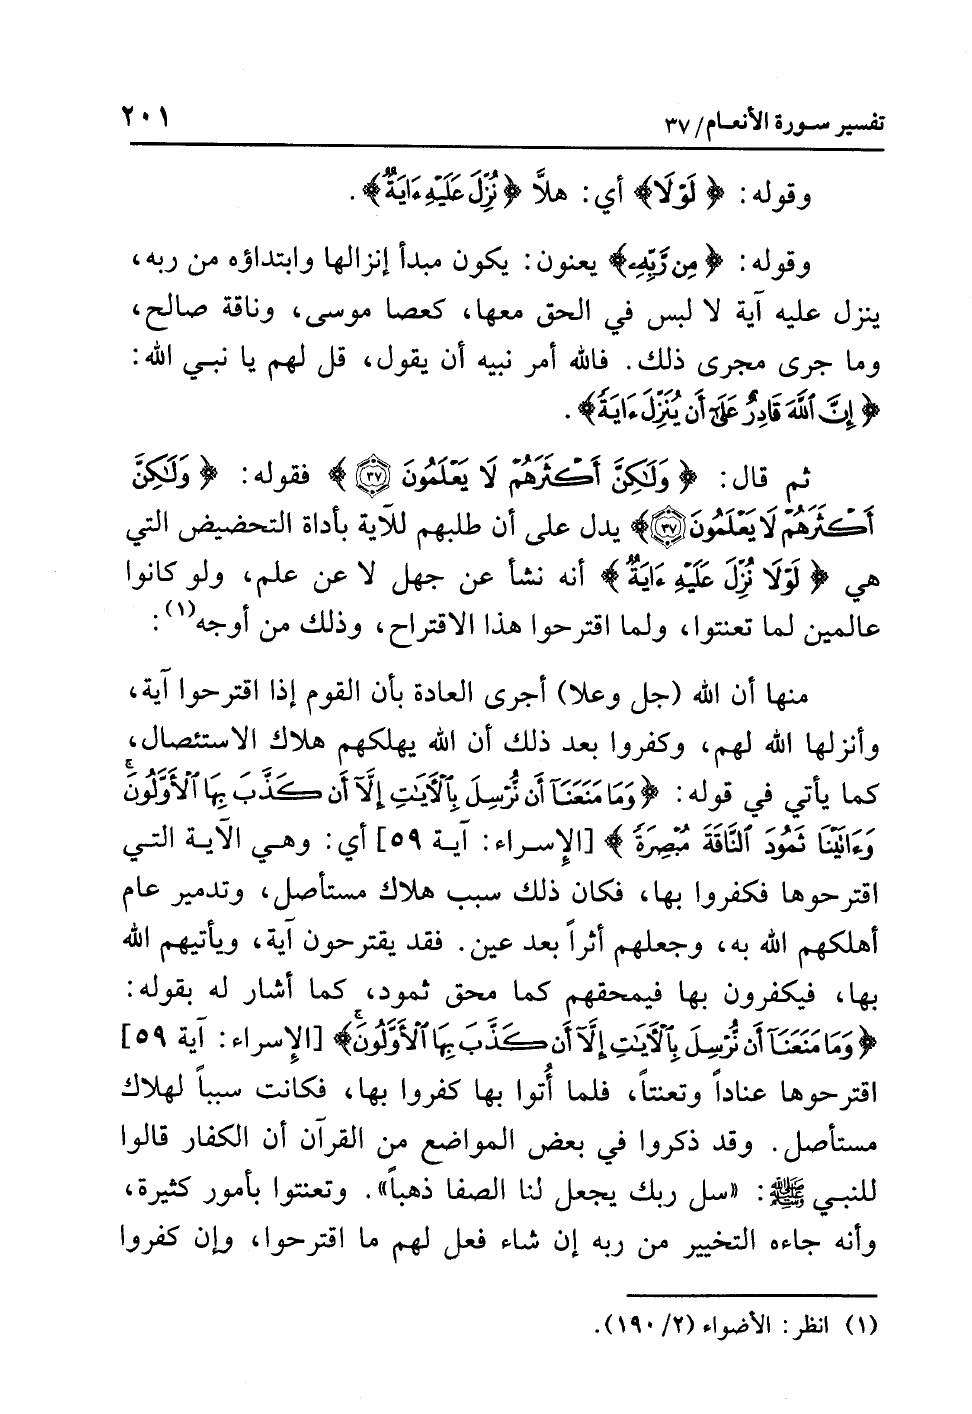 تفسير سورة الأنعام/ ٣٧
٢٠١
وقوله: ﴿ لَوْلَا﴾ أي: هلاَّ ﴿ نُزِّلَ عَلَيْهِ ءَايَةٌ﴾.
وقوله: ﴿ مِن رَّبِّهِۦ﴾ يعنون: يكون مبدأ إنزالها وابتداؤه من ربه،
ينزل عليه آية لا لبس في الحق معها، كعصا موسى، وناقة صالح،
وما جرى مجرى ذلك. فالله أمر نبيه أن يقول، قل لهم يا نبي الله:
﴿ إِنَّ ٱللَّهَ قَادِرٌ عَلَىٰٓ أَن يُنَزِّلَ ءَايَةً﴾.
ثم قال: ﴿ وَلَٰكِنَّ أَكْثَرَهُمْ لَا يَعْلَمُونَ ٣٧ ﴾ فقوله: ﴿ وَلَٰكِنَّ
أَكْثَرَهُمْ لَا يَعْلَمُونَ ٣٧﴾ يدل على أن طلبهم للآية بأداة التحضيض التي
هي ﴿ لَوْلَا نُزِّلَ عَلَيْهِ ءَايَةٌ ﴾ أنه نشأ عن جهل لا عن علم، ولو كانوا
عالمين لما تعنتوا، ولما اقترحوا هذا الاقتراح، وذلك من أوجه(١):
منها أن الله (جل وعلا) أجرى العادة بأن القوم إذا اقترحوا آية،
وأنزلها الله لهم، وكفروا بعد ذلك أن الله يهلكهم هلاك الاستئصال،
كما يأتي في قوله: ﴿ وَمَا مَنَعَنَآ أَن نُّرْسِلَ بِٱلْءَايَٰتِ إِلَّآ أَن كَذَّبَ بِهَا ٱلْأَوَّلُونَۚ
وَءَاتَيْنَا ثَمُودَ ٱلنَّاقَةَ مُبْصِرَةً ﴾ [الإسراء: آية ٥٩] أي: وهي الآية التي
اقترحوها فكفروا بها، فكان ذلك سبب هلاك مستأصل، وتدمير عام
أهلكهم الله به، وجعلهم أثراً بعد عين. فقد يقترحون آية، ويأتيهم الله
بها، فيكفرون بها فيمحقهم كما محق ثمود، كما أشار له بقوله:
﴿ وَمَا مَنَعَنَآ أَن نُّرْسِلَ بِٱلْءَايَٰتِ إِلَّآ أَن كَذَّبَ بِهَا ٱلْأَوَّلُونَۚ﴾ [الإسراء: آية ٥٩]
اقترحوها عناداً وتعنتاً، فلما أُتوا بها كفروا بها، فكانت سبباً لهلاك
مستأصل. وقد ذكروا في بعض المواضع من القرآن أن الكفار قالوا
للنبي ﷺ: «سل ربك يجعل لنا الصفا ذهباً». وتعنتوا بأمور كثيرة،
وأنه جاءه التخيير من ربه إن شاء فعل لهم ما اقترحوا، وإن كفروا
(١) انظر: الأضواء (٢/ ١٩٠).